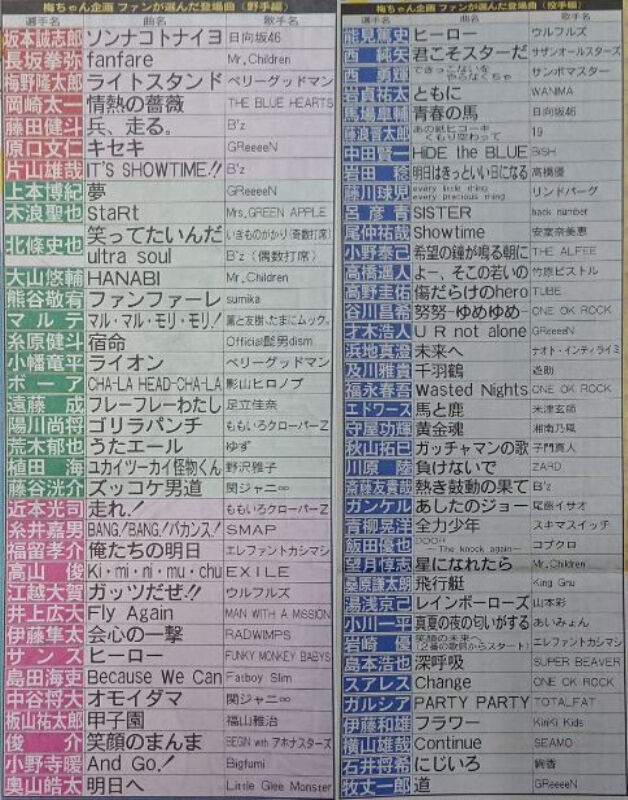 梅ちゃん企画 ファンが選んだ登場曲(野手編)
選手名 曲名 歌手名
坂本誠志郎 ソンナコトナイヨ 日向坂46
長坂拳弥 fanfare Mr.Children
梅野隆太郎 ライトスタンド ベリーグッドマン
岡崎太一 情熱の薔薇 THE BLUE HEARTS
藤田健斗 兵、走る。 B'z
原口文仁 キセキ GReeeeN
片山雄哉 IT'S SHOWTIME!! B'z
上本博紀 夢 GReeeeN
木浪聖也 staRt Mrs.GREEN APPLE
北條史也 笑ってたいんだ いきものがかり(奇数打席)
ultra soul B'z(偶数打席)
大山悠輔 HANABI Mr.Children
熊谷敬宥 ファンファーレ sumika
マルテ マル・マル・モリ・モリ! 薫と友樹、たまにムック。
糸原健斗 宿命 Official髭男dism
小幡竜平 ライオン ベリーグッドマン
ボーア CHA-LA HEAD-CHA-LA 影山ヒロノブ
遠藤成 フレーフレーわたし 足立佳奈
陽川尚将 ゴリラパンチ ももいろクローバーZ
荒木郁也 うたエール ゆず
植田海 ユカイツーカイ怪物くん 野沢雅子
藤谷洸介 ズッコケ男道 関ジャニ∞
近本光司 走れ! ももいろクローバーZ
糸井嘉男 BANG!BANG!バカンス! SMAP
福留孝介 俺たちの明日 エレファントカシマシ
高山俊 Ki・mi・ni・mu・chu EXILE
江越大賀 ガッツだぜ!! ウルフルズ
井上広大 Fly Again MAN WITH A MISSION
伊藤隼太 会心の一撃 RADWIMPS
サンズ ヒーロー FUNKY MONKEY BABYS
島田海吏 Because We Can Fatboy Slim
中谷将大 オモイダマ 関ジャニ∞
板山祐太郎 甲子園 福山雅治
俊介 笑顔のまんま BEGIN with アホナスターズ
小野寺暖 And Go! Bigfumi
奥山皓太 明日へ Little Glee Monster
梅ちゃん企画 ファンが選んだ登場曲(投手編)
選手名 曲名 歌手名
能見篤史 ヒーロー ウルフルズ
西純矢 君こそスターだ サザンオールスターズ
西勇輝 できっこないをやらなくちゃ サンボマスター
岩貞祐太 ともに WANIMA
馬場皐輔 青春の馬 日向坂46
藤浪晋太郎 あの紙ヒコーキくもり空わって 19
中田賢一 HiDE the BLUE BiSH
岩田稔 明日はきっといい日になる 高橋優
藤川球児 every little thing every precious thing リンドバーグ
呂彦青 SISTER back number
尾仲祐哉 Showtime 安室奈美恵
小野泰己 希望の鐘が鳴る朝に THE ALFEE
高橋遥人 よー、そこの若いの 竹原ピストル
高野圭佑 傷だらけのhero TUBE
谷川昌希 努努-ゆめゆめ- ONE OK ROCK
才木浩人 U R not alone GReeeeN
浜地真澄 未来へ ナオト・インティライミ
及川雅貴 千羽鶴 遊助
福永春吾 Wasted Nights ONE OK ROCK
エドワーズ 馬と鹿 米津玄師
守屋功輝 黄金魂 湘南乃風
秋山拓巳 ガッチャマンの歌 子門真人
川原陸 負けないで ZARD
斎藤友貴哉 熱き鼓動の果て B'z
ガンケル あしたのジョー 尾藤イサオ
青柳晃洋 全力少年 スキマスイッチ
飯田優也 DOOR 〜The knock again〜 コブクロ
望月惇志 星になれたら Mr.Children
桑原謙太朗 飛行艇 King Gnu
湯浅京己 レインボーローズ 山本彩
小川一平 真夏の夜の匂いがする あいみょん
岩崎優 笑顔の未来へ(2番の歌詞からスタート) エレファントカシマシ
島本浩也 深呼吸 SUPER BEAVER
スアレス Change ONE OK ROCK
ガルシア PARTY PARTY TOTALFAT
伊藤和雄 フラワー KinKi Kids
横山雄哉 Continue SEAMO
石井将希 にじいろ 絢香
牧丈一郎 道 GReeeeN